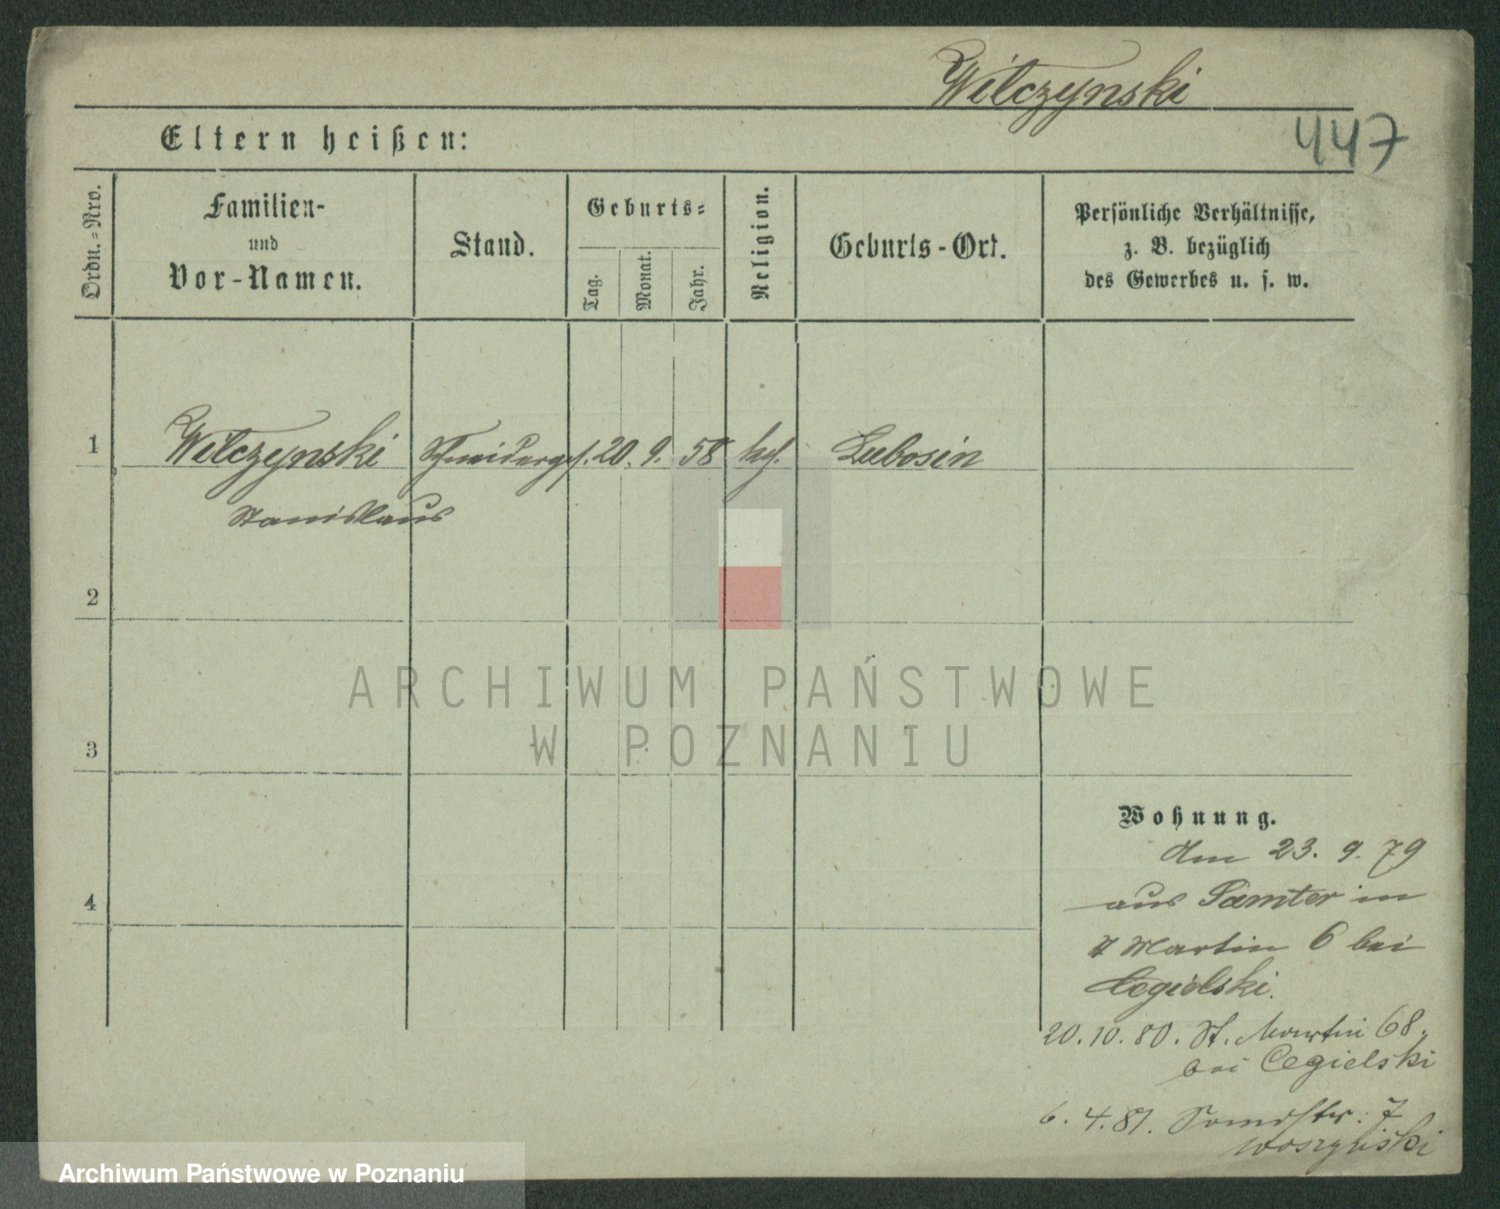 Wilczynski
447
Eltern heißen:
Ordn.-Nro.
Familien-
und
Vor-Namen.
Stand.
Geburts-
Tag.
Monat.
Jahr.
Religion.
Geburts-Ort.
Persönliche Verhältnisse,
z. B. bezüglich
des Gewerbes u. s. w.
1 Wilczynski Schneiderges. 20. 9. 58 kth. Lubosin
Stanislaus
2
ARCHIWUM PAŃSTWOWE
W POZNANIU
3
4
Wohnung.
Am 23. 9. 79
aus Samter in
St Martin 6 bei
Cegielski.
20. 10. 80. St. Martin 68,
bei Cegielski
6. 4. 81. 7
Archiwum Państwowe w Poznaniu